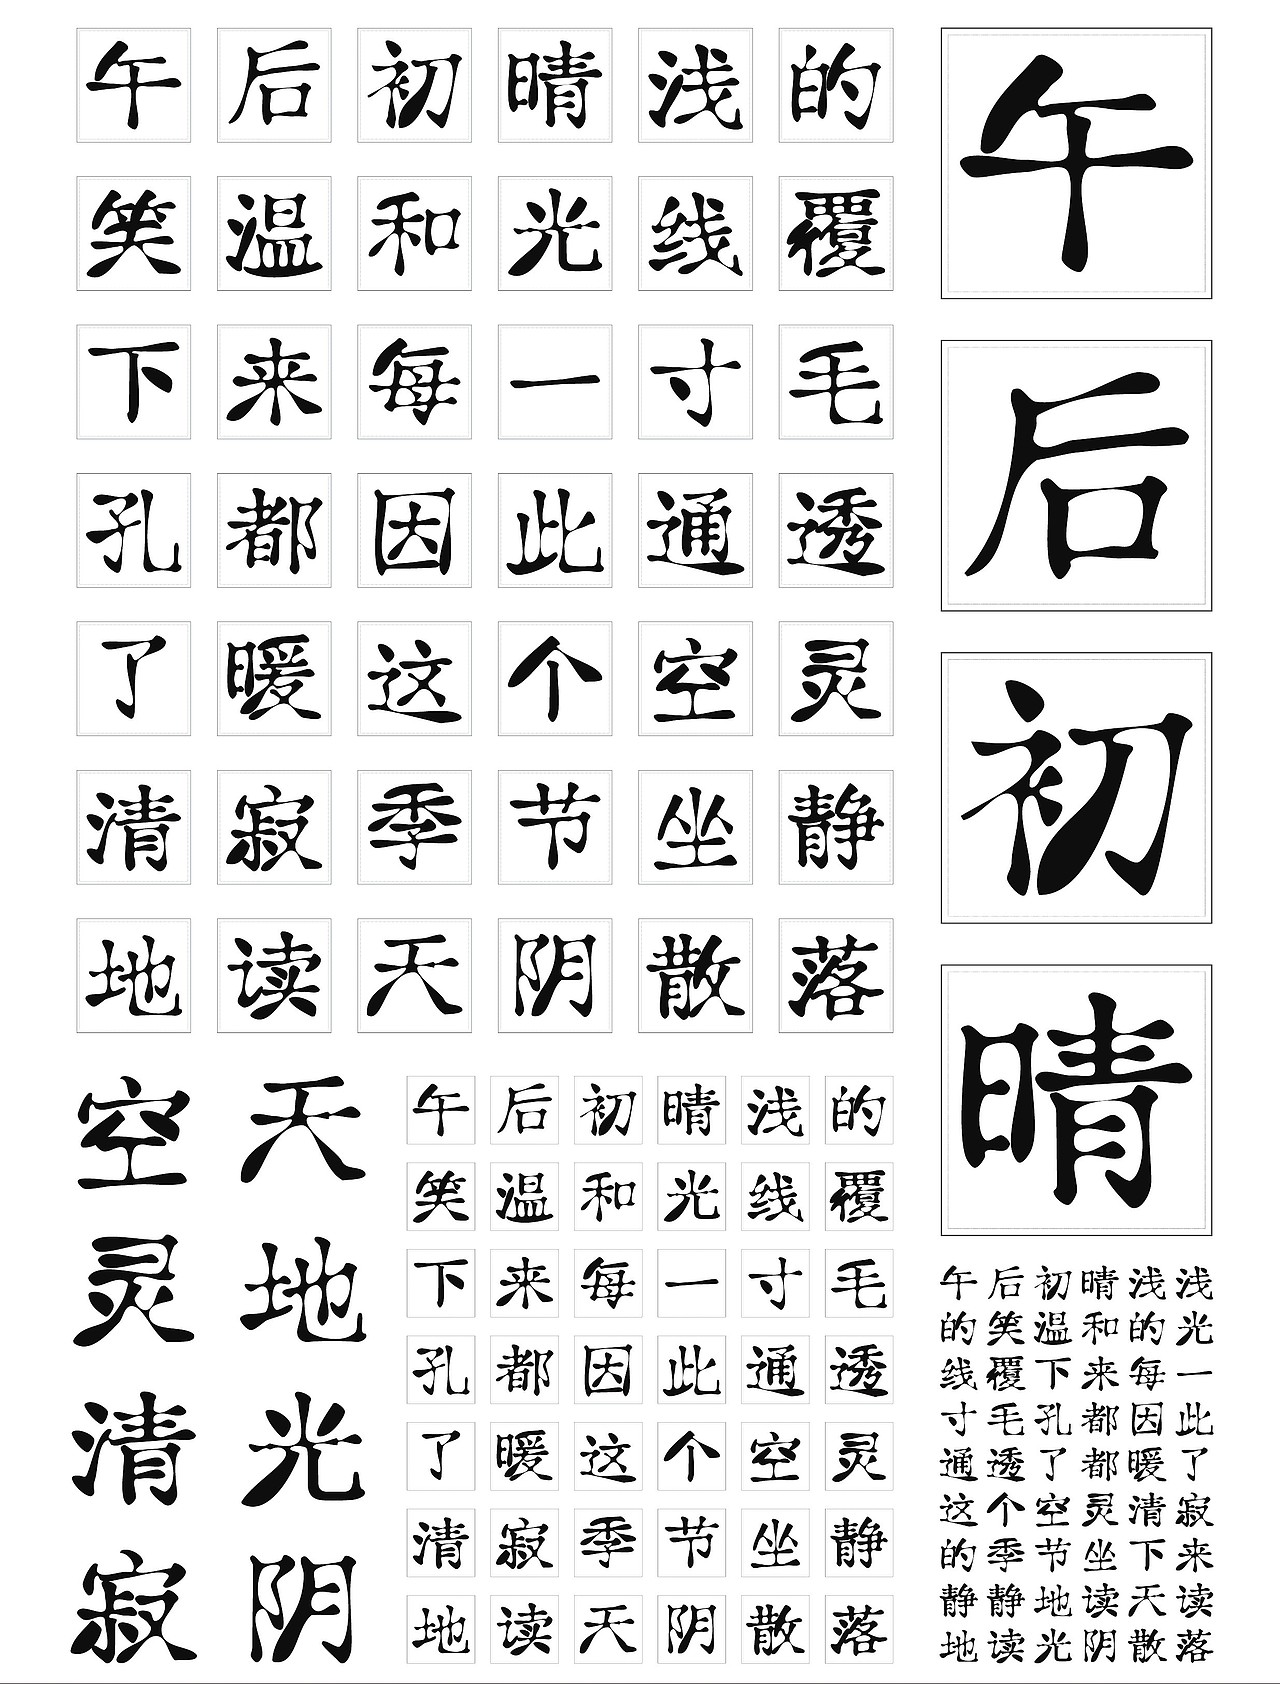 午后初晴浅的
笑温和光线覆
下来每一寸毛
孔都因此通透
了暖这个空灵
清寂季节坐静
地读天阴散落
午
后
初
晴
空天
灵地
清光
寂阴
午后初晴浅的
笑温和光线覆
下来每一寸毛
孔都因此通透
了暖这个空灵
清寂季节坐静
地读天阴散落
午后初晴浅浅
的笑温和的光
线覆下来每一
寸毛孔都因此
通透了都暖了
这个空灵清寂
的季节坐下来
静静地读天读
地读光阴散落